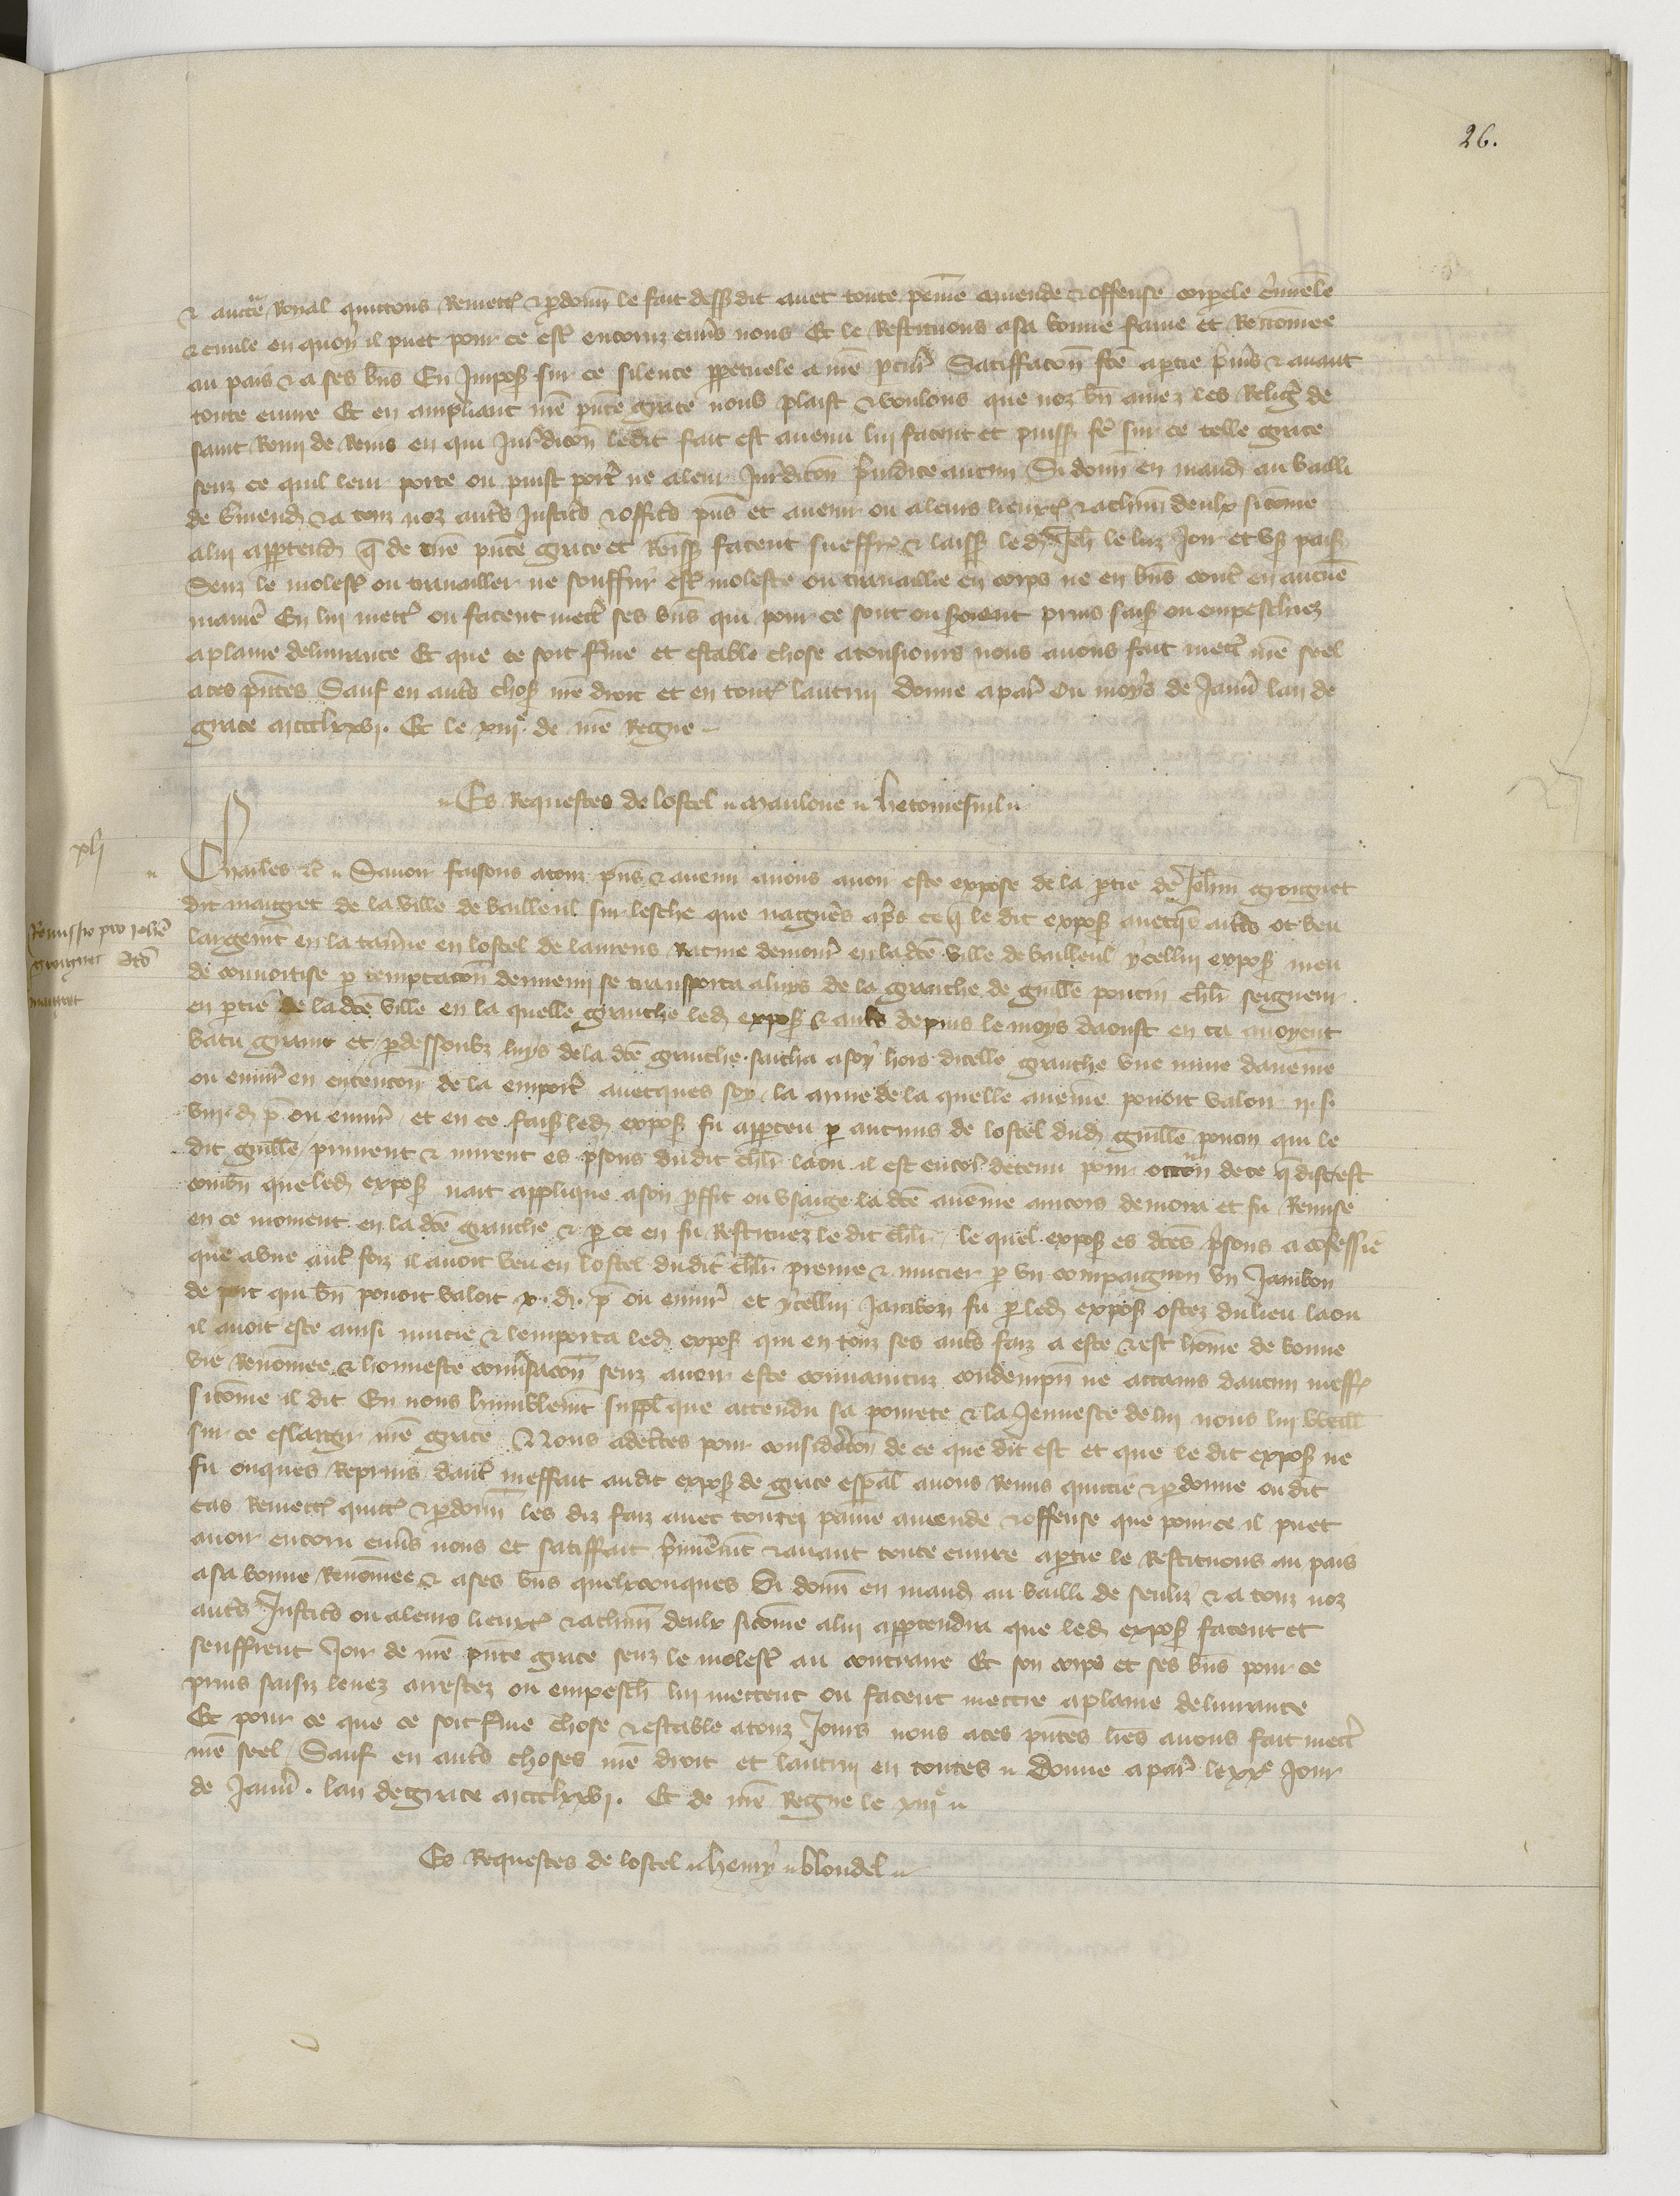 26.
⁊ aucte Royal quittons Remett ⁊ pdonn le fait dessdit avec toute peine amende ⁊ offense corpele cimele
⁊ civile en quoy il puet pour ce est encoruz envs nous Et le Restituons a sa bonne fame et Renomee
au pais ⁊ a ses bns En Imposs sur ce silence ppetuele a nre pcur Satiffacon fte aptie pmis ⁊ avant
toute euvre Et en ampliant nre pnte grace nous plaist ⁊ voulons que noz bn amez les Relig de
saint Remi de Reins en qui Juridicon ledit fait est avenu lui facent et puiss fe sur ce telle grace
senz ce quil leur porte ou puist port ne a leur Juridicon preiudice aucun Si donn en mand au bailli
de vmend ⁊ a touz noz auts Justics ⁊ offics pns et avenir ou a leurs lieuxt ⁊ a chun deulx sicome
a lui appartend q de nre pnte grace et Remiss facent sueffr ⁊ laiss led Jeh le luz Joir et us paiss
Senz le molest ou travailler ne souffrir est moleste ou travaillie en corps ne en bns cont en aucune
manie En lui mett ou facent mett ses bns qui pour ce sont ou seroient prins saiss ou empeschiez
a plaine delivrance Et que ce soit fme et estable chose a tousiours nous avons fait mett nre seel
a ces pntes Sauf en auts choses nre droit et en tout lautrui Donne a par ou moys de Janv lan de
grace mccclxxvi. Et le xiije de nre Regne
Es Requestes de lostel Maulone hetomesnil
xlj
Remissio pro johe
groignet dts
maigret
Charles etc Savoir faisons a touz pns ⁊ avenir avons avoir este expose de la ptie de Jehan groignet
dit maigret de la ville de bailleul sur lesche que nagueres aps ce q le dit exposs avecqs auts ot beu
largement en la taverne en lostel de laurens Racine demour en la dce ville de bailleul ycellui exposs meu
de convoitise p temptacon dennemi se transporta a luys de la granche de guille poucin chlr seigneur
en ptie de la dce ville en la quelle granche led exposs ⁊ auts depuis le moys daoust en ca avoyent
batu grains et pdessoubz luys de la dce granche sacha a soy hors dicelle granche une mine daveine
ou environ en entencon de la emport avecques soy la mine de la quelle aveine povoit valoir ij. s.
viij. d p ou envir et en ce faiss led exposs fu apperceu p aucuns de lostel dud guille poucin qui le
dit guille prinrent ⁊ mirent es prisons du dit chlr la ou il est encor detenu pour occon de ce q dit est
combn que led exposs nait applique a son proffit ou usaige la dce aveine aincois demora et fu Remise
en ce moment en la dce granche ⁊ p ce en fu Restituez le dit chlr le quel exposs es dces prisons a confessie
que a une aut foiz il avoit veu en lostel du dit chlr prenre ⁊ mucier p un compaignon un Jambon
de porc qui bn povoit valoir v. d. p ou envir et ycellui Jambon fu p led exposs ostez du lieu la ou
il avoit este ainsi mucie ⁊ lemporta led exposs qui en touz ses auts faiz a este ⁊ est home de bonne
vie Renomee ⁊ honneste conversacon senz avoir este convaincuz condempn ne attains daucun meff
sicome il dit En nous humblement suppl que attendu sa povrete ⁊ la Jeunesce de lui nous lui vueill
sur ce eslargir nre grace Nous adectes pour consideracon de ce que dit est et que le dit exposs ne
fu onques Reprins daut meffait au dit exposs de grace espal avons Remis quictie ⁊ pdonne ou dit
cas Remett quitt ⁊ pdonn les diz faiz avec toute paine amende ⁊ offense que pour ce il puet
avoir encoru envs nous et satiffait primerement ⁊ avant toute euvre aptie le Restituons au pais
a sa bonne Renomee ⁊ a ses bns quelxconques Si donn en mand au bailli de senliz ⁊ a touz noz
auts Justics ou a leurs lieuxt ⁊ a chun deulx sicome a lui appartendra que led exposs facent et
seuffrent Joir de nre pnte grace senz le molest au contraire Et son corps et ses bns pour ce
prins saisiz levez arrestez ou empesch lui mettent ou facent mettre a plaine delivrance
Et pour ce que ce soit fme chose ⁊ estable a touz Jours nous a ces pntes lres avons fait mett
nre seel Sauf en auts choses nre droit et lautrui en toutes Donne a par le xxe Jour
de Janv. lan de grace mccclxxvi. Et de nre Regne le xiije
Es Requestes de lostel henry blondel